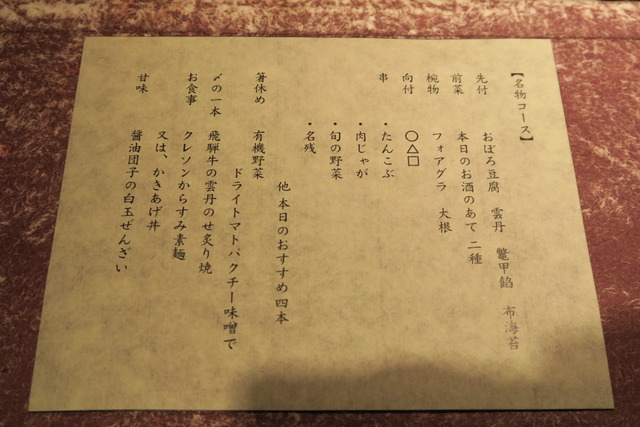 【名物コース】
先付 おぼろ豆腐 雲丹 鼈甲餡 布海苔
前菜 本日のお酒のあて 二種
椀物 フォアグラ 大根
向付 〇△□
串 ・たんこぶ
・肉じゃが
・旬の野菜
・名残
他 本日のおすすめ四本
箸休め 有機野菜
ドライトマトパクチー味噌で
〆の一本 飛騨牛の雲丹のせ炙り焼
お食事 クレソンからすみ素麺
又は、かきあげ丼
甘味 醤油団子の白玉ぜんざい